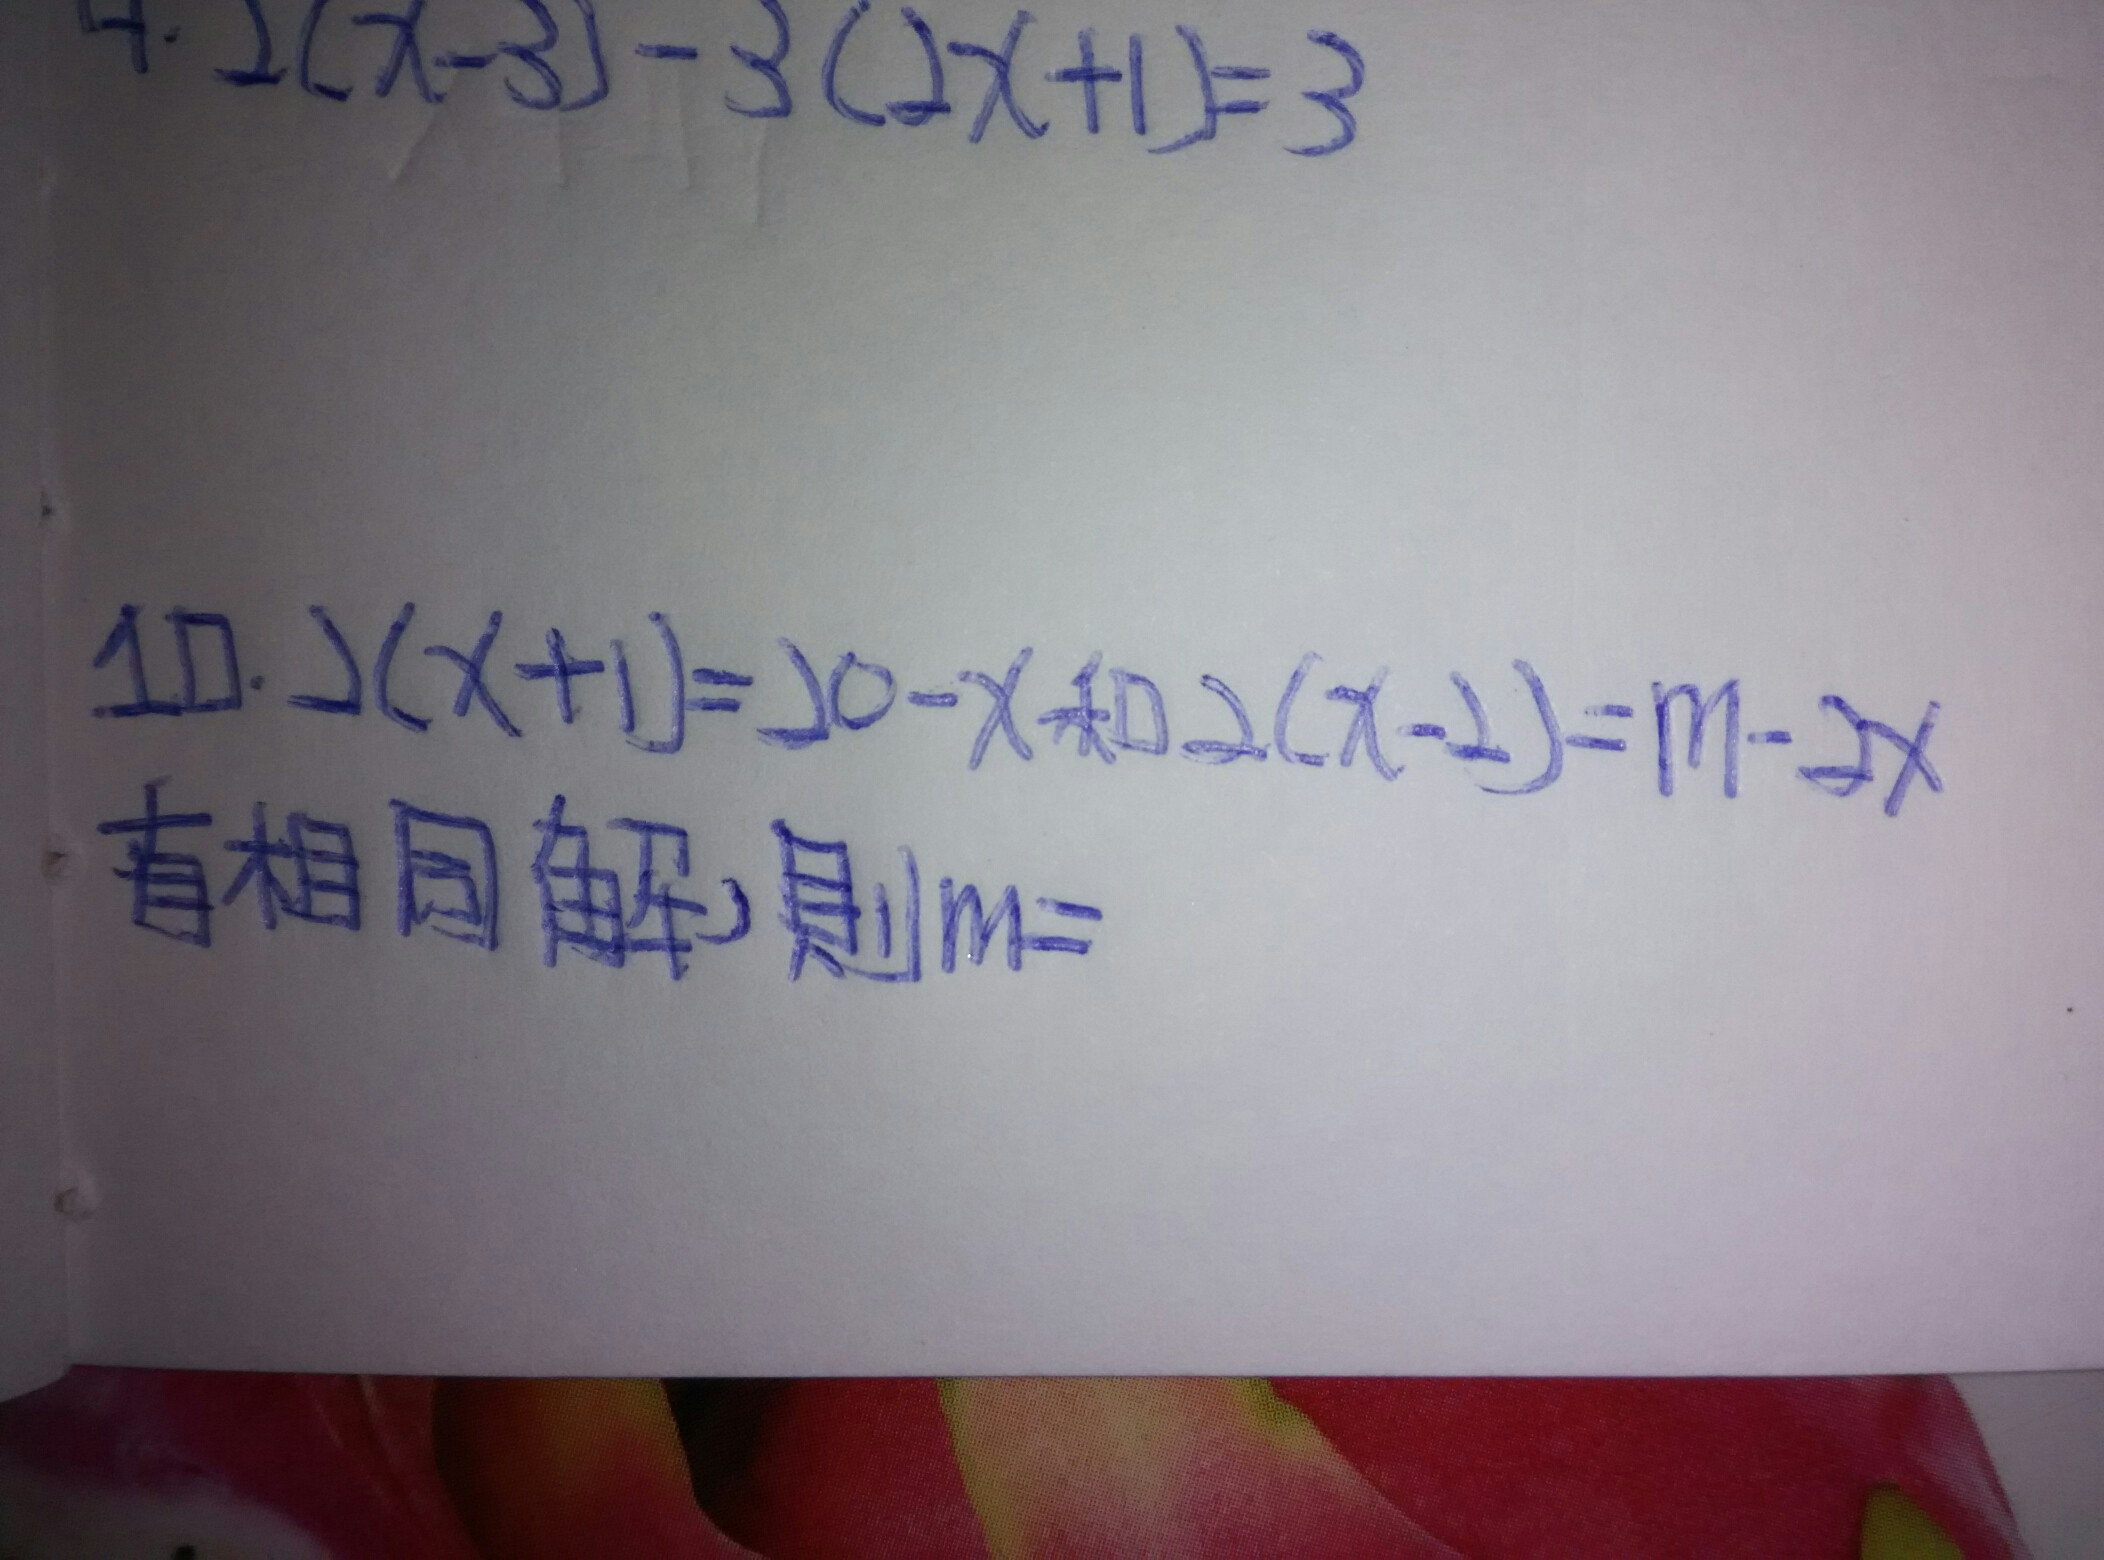 4. 2(x-3)-3(2x+1)=3
10. 2(x+1)=20-x和2(x-2)=m-2x
有相同解,则m=